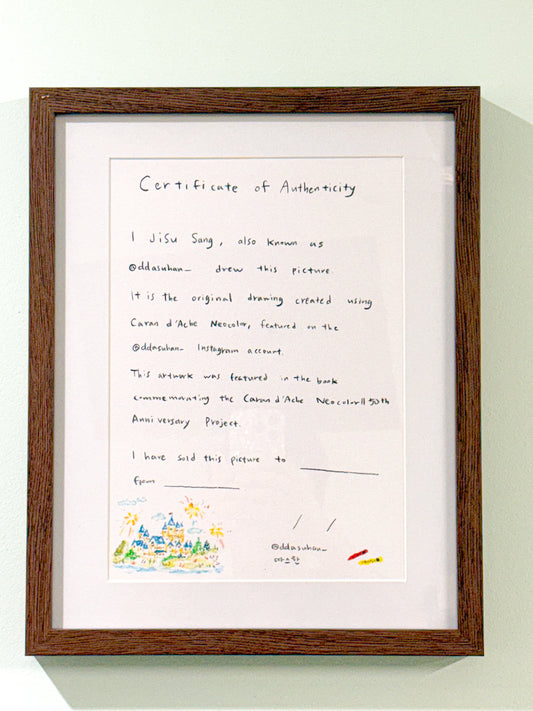 Certificate of Authenticity
I JiSu Sang, also known as
@ddasuhan_ drew this picture.
It is the original drawing created using
Caran d'Ache Neocolor, featured on the
@ddasuhan_ Instagram account.
This artwork was featured in the book
commemorating the Caran d'Ache NeocolorII 50th
Anniversary Project.
I have sold this picture to
from
/ /
@ddasuhan_
따스한